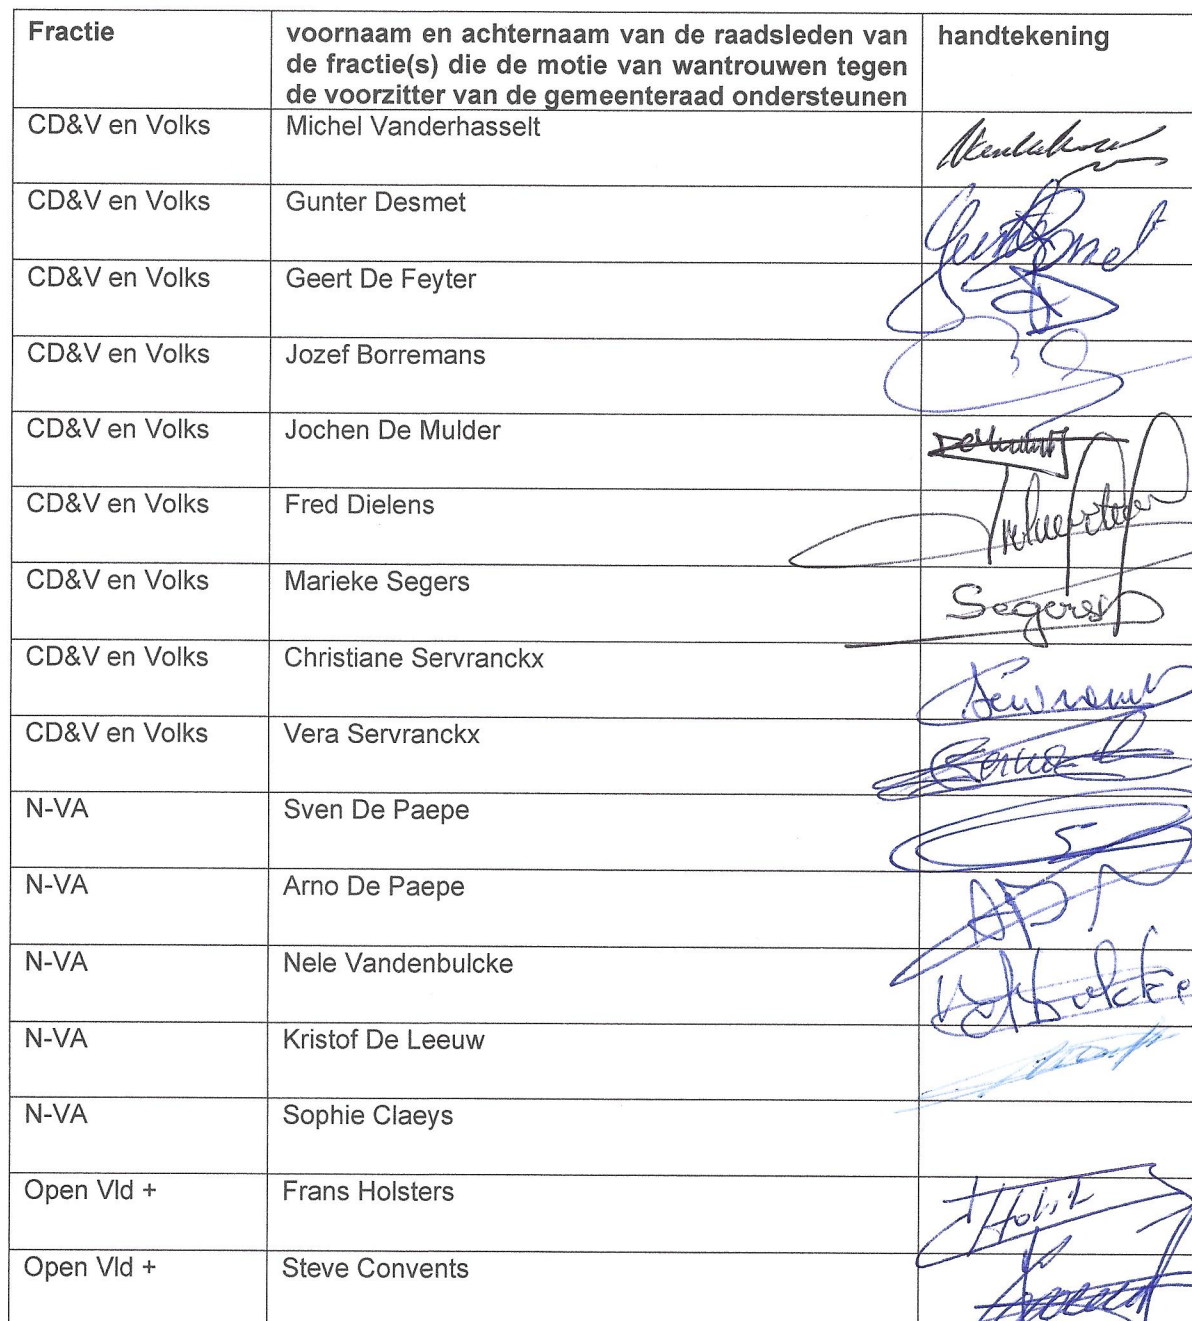 Fractie
voornaam en achternaam van de raadsleden van
de fractie(s) die de motie van wantrouwen tegen
de voorzitter van de gemeenteraad ondersteunen
handtekening
CD&V en Volks Michel Vanderhasselt
CD&V en Volks Gunter Desmet
CD&V en Volks Geert De Feyter
CD&V en Volks Jozef Borremans
CD&V en Volks Jochen De Mulder
CD&V en Volks Fred Dielens
CD&V en Volks Marieke Segers Segers
CD&V en Volks Christiane Servranckx
CD&V en Volks Vera Servranckx
N-VA Sven De Paepe
N-VA Arno De Paepe
N-VA Nele Vandenbulcke
N-VA Kristof De Leeuw
N-VA Sophie Claeys
Open Vld + Frans Holsters
Open Vld + Steve Convents